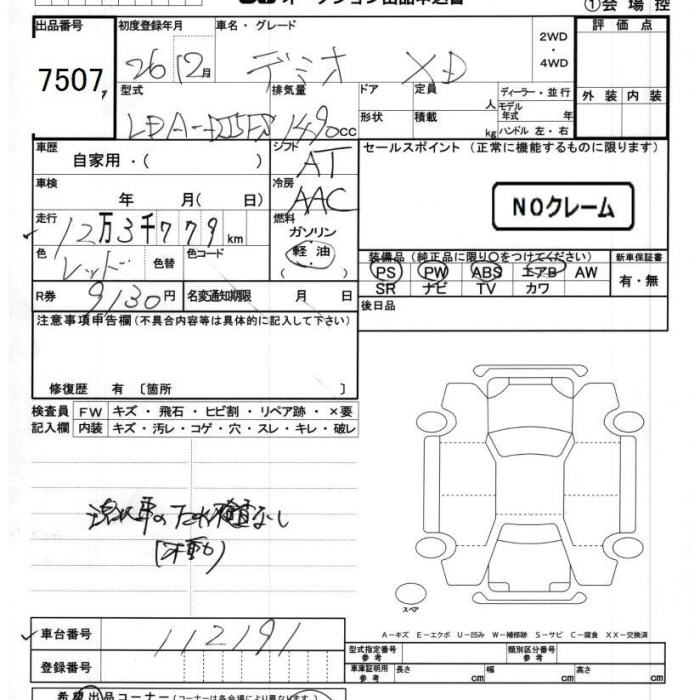 オークション出品申込書 ①会場控
出品番号 初度登録年月 車名・グレード 2WD・4WD 評価点
7507 26 12月 デミオ XD
型式 排気量 ドア 定員 人 ディーラー・並行 外装 内装
LDA-DJ5FS 1490cc 形状 積載 kg モデル年式 年 ハンドル 左・右
車歴 自家用・( ) シフト AT セールスポイント (正常に機能するものに限ります)
車検 年 月( 日) 冷房 AAC NOクレーム
走行 12万3千779km 燃料 ガソリン
軽油
( )
色 レッド 色替 色コード 装備品 (純正品に限り○をつけてください) 新車保証書
PS PW ABS エアB AW 有・無
R券 9130円 名変通知期限 月 日 SR ナビ TV カワ
注意事項申告欄 (不具合内容等は具体的に記入して下さい) 後日品
修復歴 有 〔箇所 〕
検査員 FW キズ・飛石・ヒビ割・リペア跡・×要
記入欄 内装 キズ・汚レ・コゲ・穴・スレ・キレ・破レ
浸水車のため検査なし
(不動)
スペア
A-キズ E-エクボ U-凹み W-補修跡 S-サビ C-腐食 XX-交換済
車台番号 112191
型式指定番号 参考 類別区分番号 参考
登録番号 車庫証明用 参考 長さ cm 幅 cm 高さ cm
希望出品コーナー (コーナーは各会場により異なります)